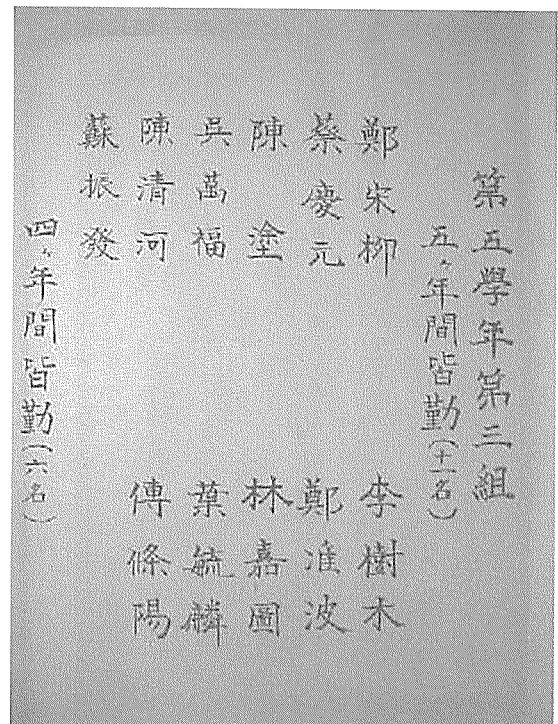 第五學年第三組
五、年間皆勤(十一名)
鄭宋柳
李樹木
蔡慶元
鄭淮波
陳塗
林嘉圖
吳萬福
葉毓麟
陳清河
傅條陽
蘇振發
四、年間皆勤(六名)